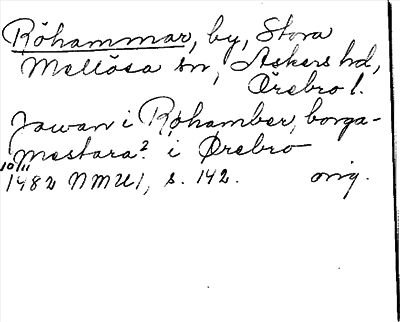 Röhammar, by, Stora
Mellösa sn, Askers hd,
Örebro l.
Jawan i Røhamber, borga-
mestara? i Ørebro
10/11
1482 NMU1, s. 142. orig.